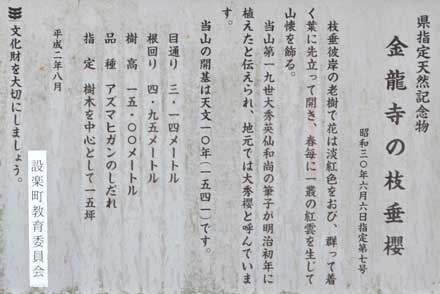 県指定天然記念物
金龍寺の枝垂櫻
昭和三〇年六月六日指定第七号
枝垂彼岸の老樹で花は淡紅色をおび、群って着
く葉に先立って開き、春毎に一叢の紅雲を生じて
山懐を飾る。
当山第一九世大秀英仙和尚の筆子が明治初年に
植えたと伝えられ、地元では大秀櫻と呼んでいま
す。
当山の開基は天文一〇年（一五四一）です。
目通り 三・一四メートル
根回り 四・九五メートル
樹高 一五・〇〇メートル
品種 アズマヒガンのしだれ
指定 樹木を中心として一五坪
平成二年八月
設楽町教育委員会
文化財を大切にしましょう。